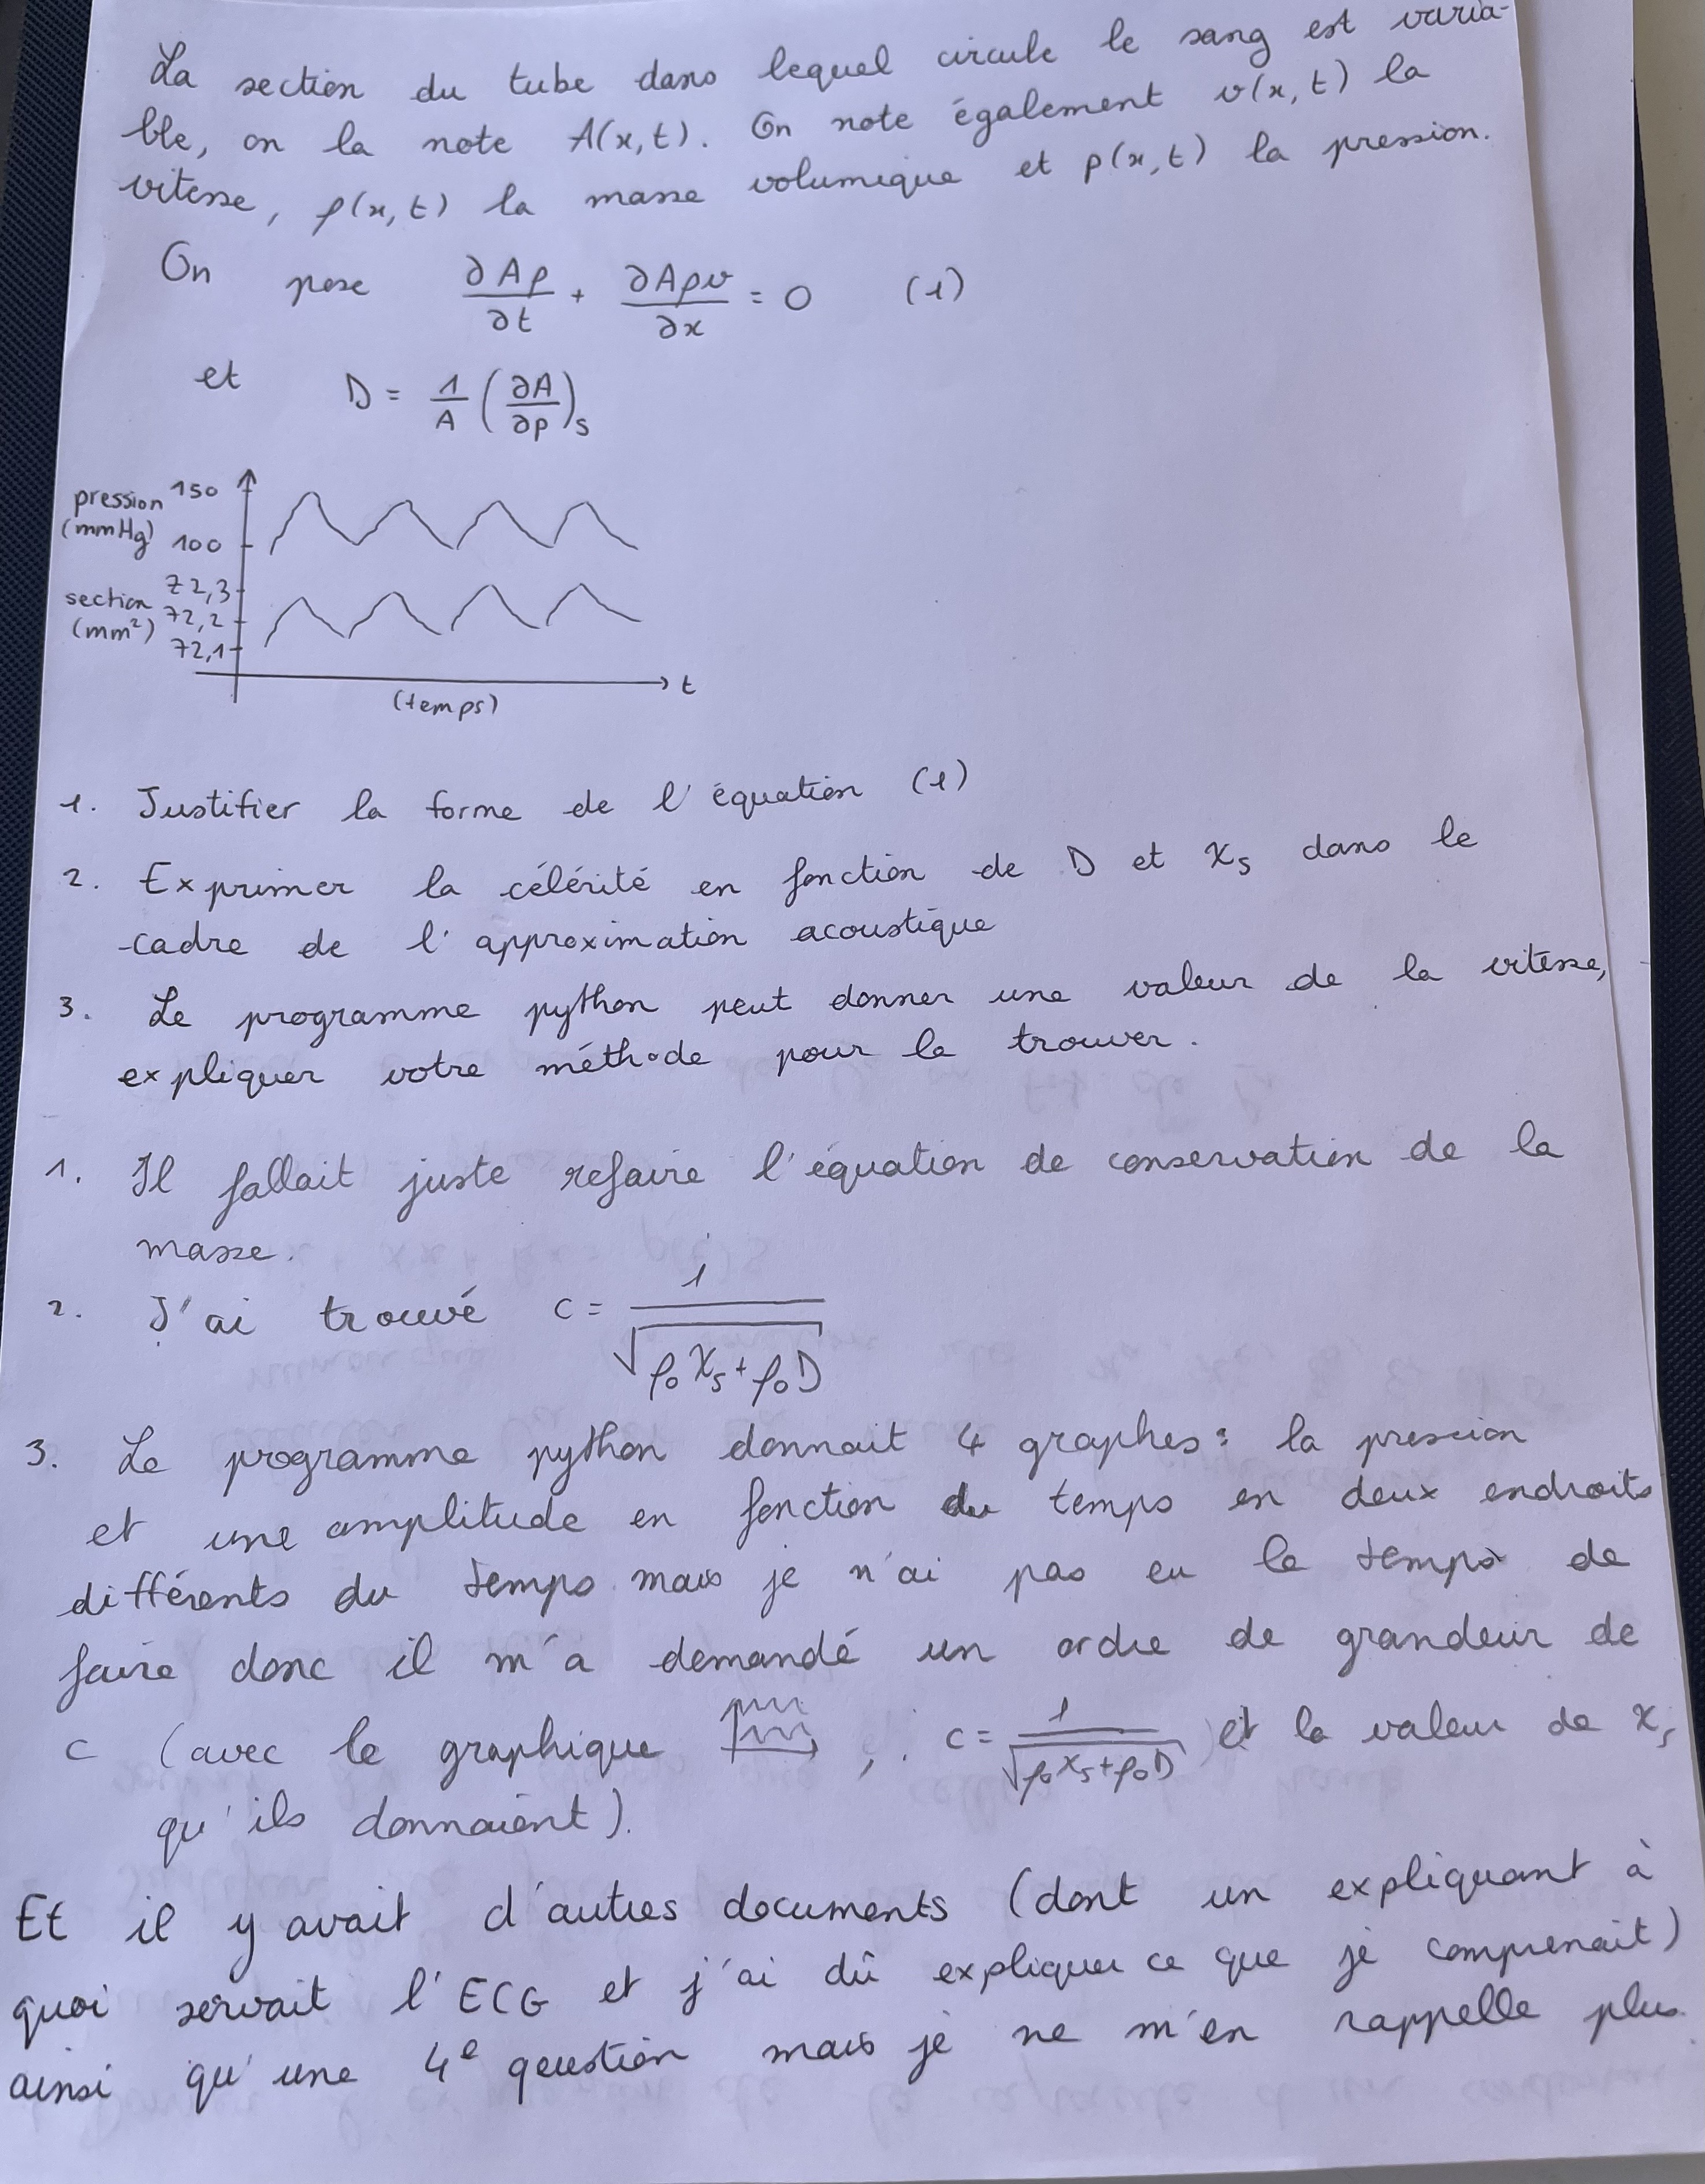 La section du tube dans lequel circule le sang est varia-
ble, on la note A(x,t). On note également v(x,t) la
vitesse, ρ(x,t) la masse volumique et p(x,t) la pression.
On pose ∂Aρ/∂t + ∂Aρv/∂x = 0 (1)
et D = 1/A (∂A/∂p)s
pression (mmHg) 150
100
section (mm²) 72,3
72,2
72,1
t
(temps)
1. Justifier la forme de l'équation (1)
2. Exprimer la célérité en fonction de D et χs dans le
cadre de l'approximation acoustique
3. Le programme python peut donner une valeur de la vitesse,
expliquer votre méthode pour la trouver.
1. Il fallait juste refaire l'équation de conservation de la
masse.
2. J'ai trouvé c = 1/√(ρ₀χs + ρ₀D)
3. Le programme python donnait 4 graphes : la pression
et une amplitude en fonction du temps en deux endroits
différents du temps mais je n'ai pas eu le temps de
faire donc il m'a demandé un ordre de grandeur de
c (avec le graphique , c = 1/√(ρ₀χs + ρ₀D) et la valeur de χs
qu'ils donnaient).
Et il y avait d'autres documents (dont un expliquant à
quoi servait l'ECG et j'ai dû expliquer ce que je comprenait)
ainsi qu'une 4e question mais je ne m'en rappelle plus.